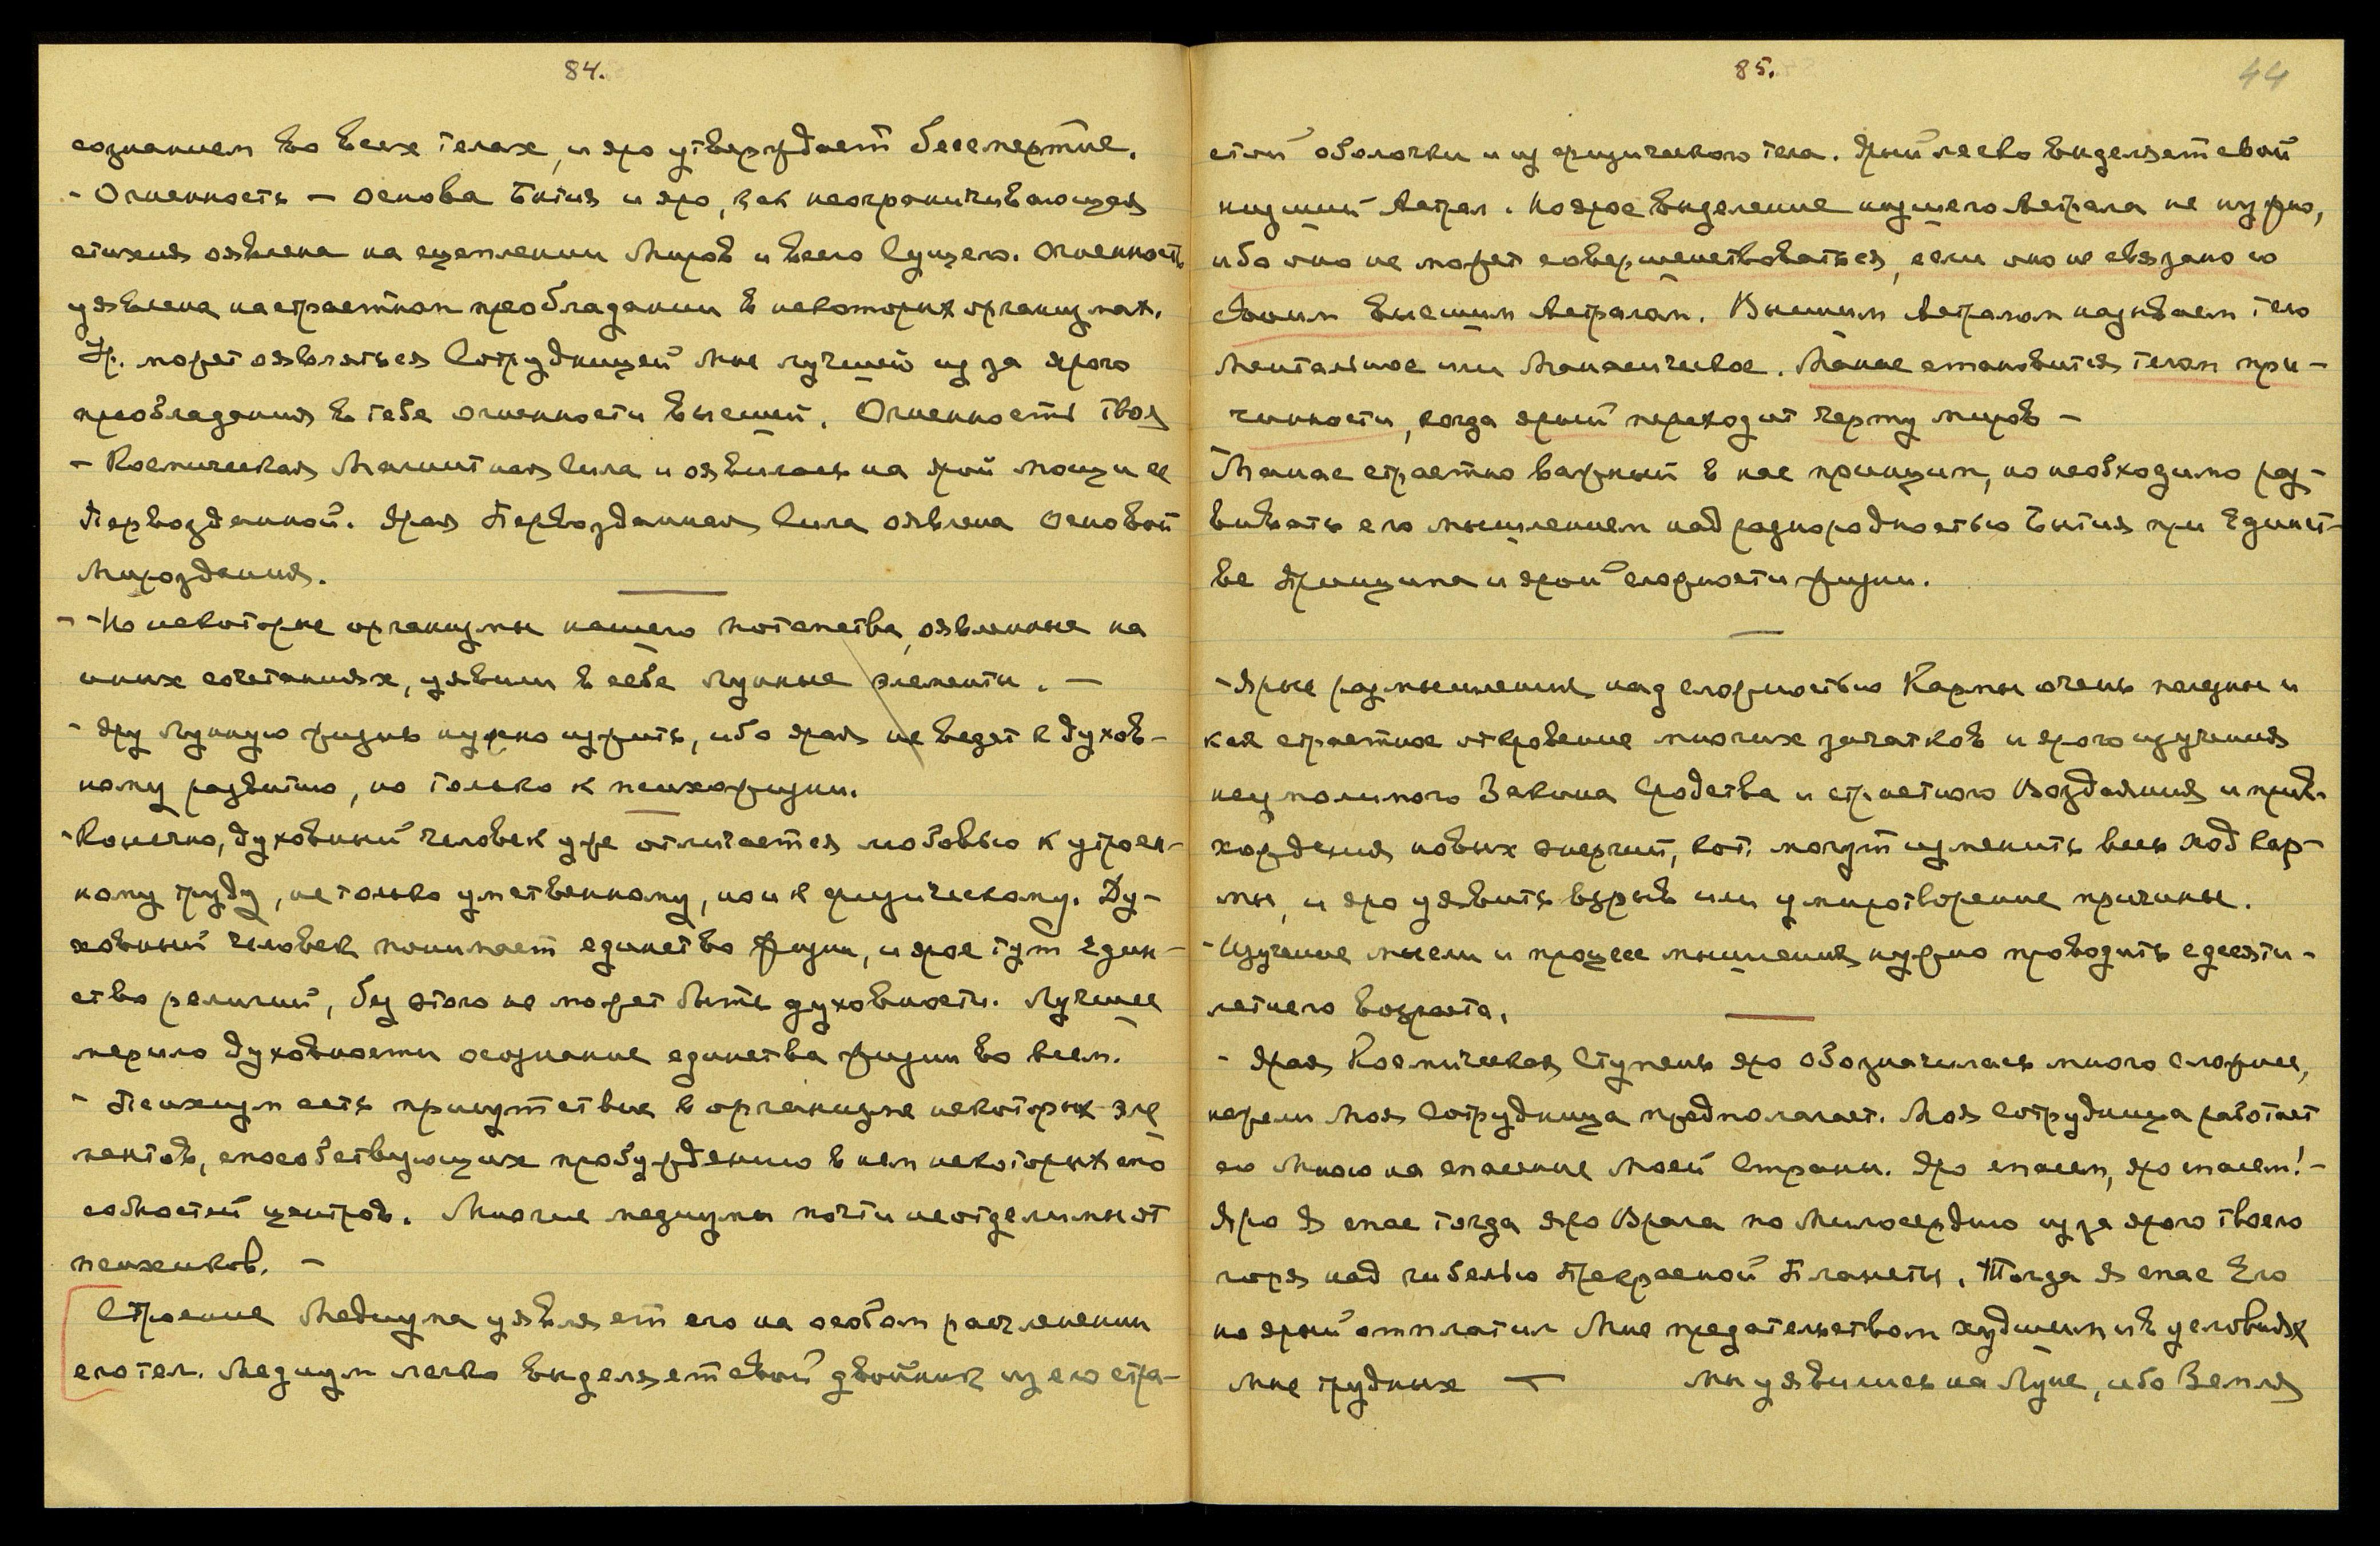 84.
сознанием во всех телах, и яро утверждает бессмертие.
- Огненность — основа Бытия и яро, как неограничивающая
стихия оявлена на сцеплении Миров и всего Сущего. Огненность
уявлена на страстном преобладании в некоторых организмах.
Ур. может оявляться Сотрудницей Мне лучшей из за ярого
преобладания в тебе огненности высшей. Огненность твоя
- Космическая Магнитная Сила и оявилась на ярой мощи ее
Первозданной. Ярая Первозданная Сила оявлена основой
Мироздания.
- - Но некоторые организмы нашего потомства, оявленные на
иных сочетаниях, уявили в себе Лунные элементы. —
- Яру Лунную жизнь нужно изжить, ибо ярая не ведет к духов-
ному развитию, но только к психожизни.
- Конечно, духовный человек уже отличается любовью к утроен-
ному труду, не только умственному, но и к физическому. Ду-
ховный человек понимает единство жизни, и ярое тут един-
ство религий, без этого не может быть духовности. Лучшее
мерило духовности осознание единства жизни во всем.
- Психизм есть присутствие в организме некоторых эле
ментов, способствующих пробуждению в нем некоторых спо
собностей центров. Многие медиумы почти неотделимы от
психиков. —
Строение Медиума уявляет его на особом расчленении
его тел. Медиум легко выделяет свой двойник из его стра-
85.
44
стной оболочки и из физического тела. Ярый легко выделяет свой
низший Астрал. Но ярое выделение низшего Астрала не нужно,
ибо оно не может совершенствоваться, если оно не связано со
своим высшим Астралом. Высшим Астралом называем тело
Ментальное или Манасическое. Манас становится телом при-
чинности, когда ярый переходит черту миров —
Манас страстно важный в нас принцип, но необходимо раз-
вивать его мышлением над разнородностью Бытия при Единст-
ве Принципа и ярой сложности жизни.
- Ярые размышления над сложностью Кармы очень полезны и
как страстное откровение многих зачатков и ярого изучения
неумолимого Закона Сродства и страстного Воздаяния и прив-
хождения новых энергий, кот. могут изменить весь ход кар-
мы, и яро уявить взрыв или умиротворение причины.
- Изучение мысли и процесс мышления нужно проводить с десяти-
летнего возраста.
- Ярая Космическая Ступень яро обозначилась много сложнее,
нежели Моя Сотрудница предполагает. Моя Сотрудница работает
со Мною на спасение Моей Страны. Яро спасем, яро спасем! -
Яро Я спас тогда яро Врага по Милосердию из за ярого твоего
горя над гибелью Прекрасной Планеты. Тогда Я спас Его
но ярый отплатил Мне предательством худшим и в условиях
Мне трудных — Мы уявились на Луне, ибо Земля